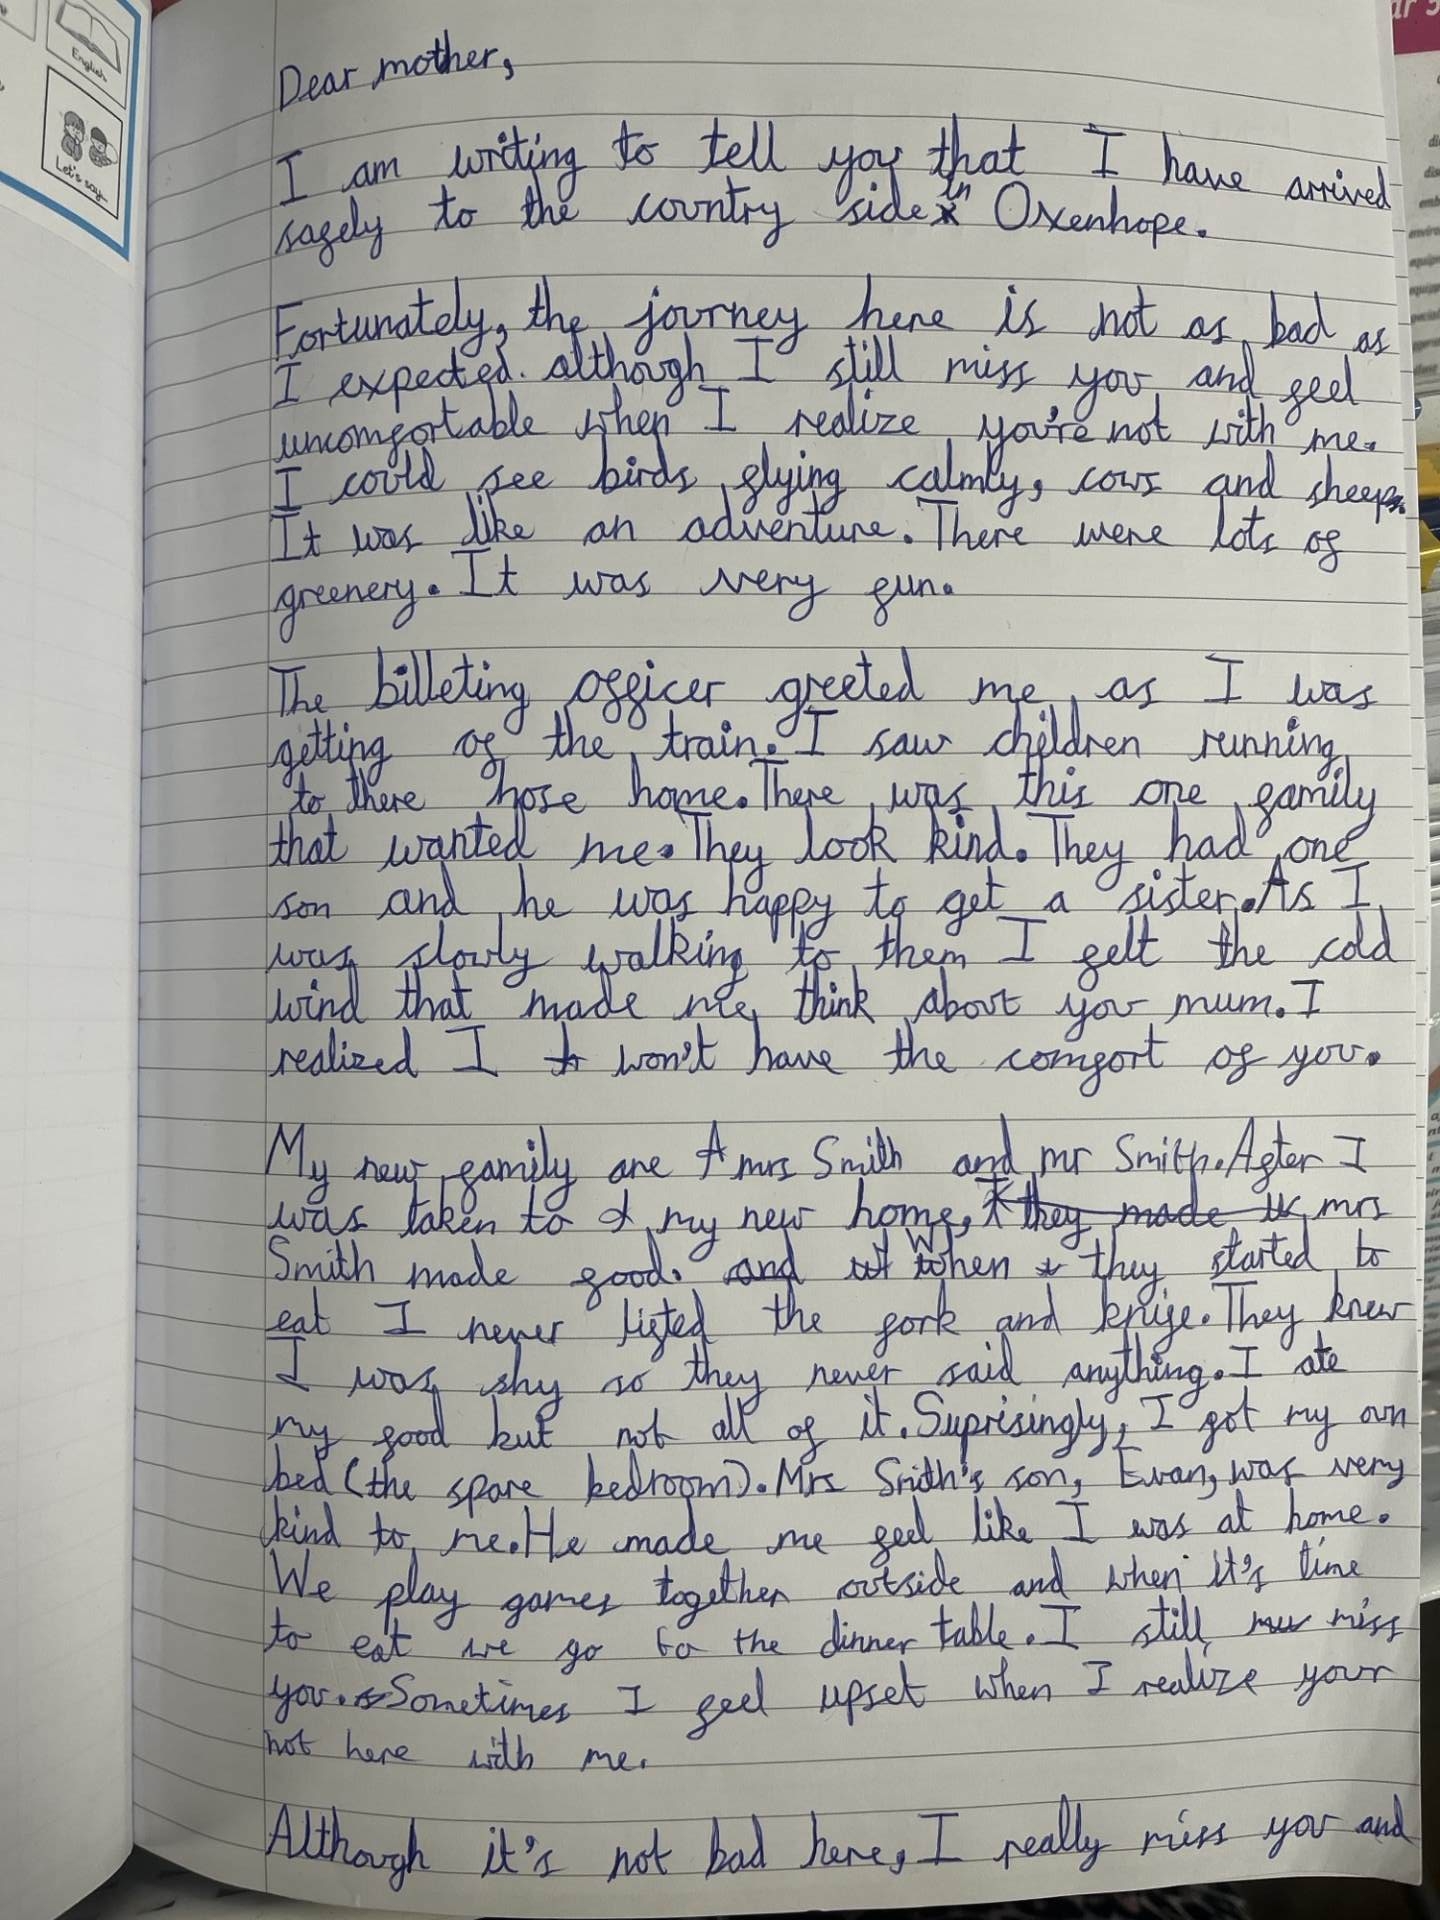 English
Let's say
Dear mother,
I am writing to tell you that I have arrived
safely to the country side in Oxenhope.
Fortunately, the journey here is not as bad as
I expected. although I still miss you and feel
uncomfortable when I realize you're not with me.
I could see birds flying calmly, cows and sheep.
It was like an adventure. There were lots of
greenery. It was very fun.
The billeting officer greeted me as I was
getting of the train. I saw children running
to there hose home. There was this one family
that wanted me. They look kind. They had one
son and he was happy to get a sister. As I
was slowly walking to them I felt the cold
wind that made me think about you mum. I
realized I won't have the comfort of you.
My new family are mrs Smith and mr Smith. After I
was taken to my new home, they made mrs
Smith made food. and When they started to
eat I never lifted the fork and knife. They knew
I was shy so they never said anything. I ate
my food but not all of it. Suprisingly, I got my own
bed (the spare bedroom). Mrs Smith's son, Evan, was very
kind to me. He made me feel like I was at home.
We play games together outside and when it's time
to eat we go to the dinner table. I still miss
you. Sometimes I feel upset when I realize your
not here with me.
Although it's not bad here, I really miss you and